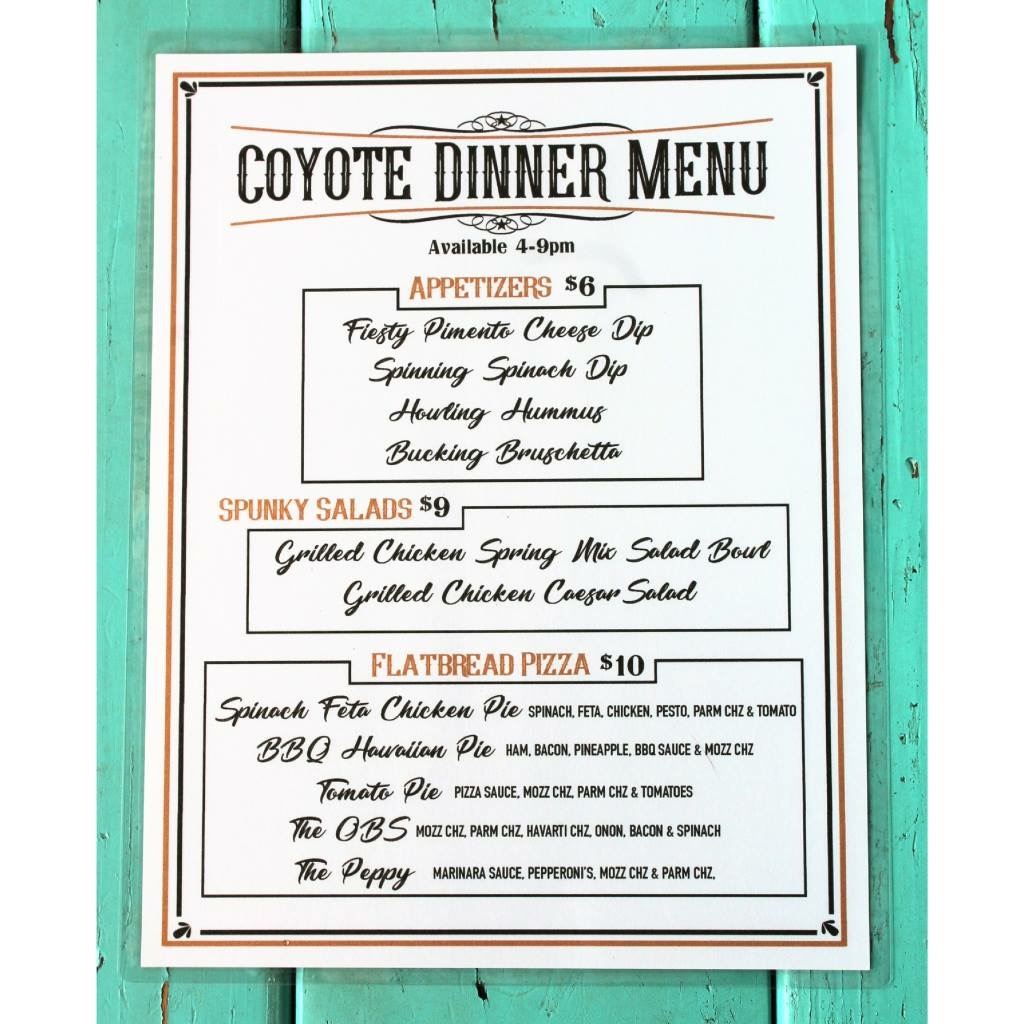 COYOTE DINNER MENU
Available 4-9pm
APPETIZERS $6
Fiesty Pimento Cheese Dip
Spinning Spinach Dip
Howling Hummus
Bucking Bruschetta
SPUNKY SALADS $9
Grilled Chicken Spring Mix Salad Bowl
Grilled Chicken Caesar Salad
FLATBREAD PIZZA $10
Spinach Feta Chicken Pie SPINACH, FETA, CHICKEN, PESTO, PARM CHZ & TOMATO
BBQ Hawaiian Pie HAM, BACON, PINEAPPLE, BBQ SAUCE & MOZZ CHZ
Tomato Pie PIZZA SAUCE, MOZZ CHZ, PARM CHZ & TOMATOES
The OBS MOZZ CHZ, PARM CHZ, HAVARTI CHZ, ONON, BACON & SPINACH
The Peppy MARINARA SAUCE, PEPPERONI'S, MOZZ CHZ & PARM CHZ,